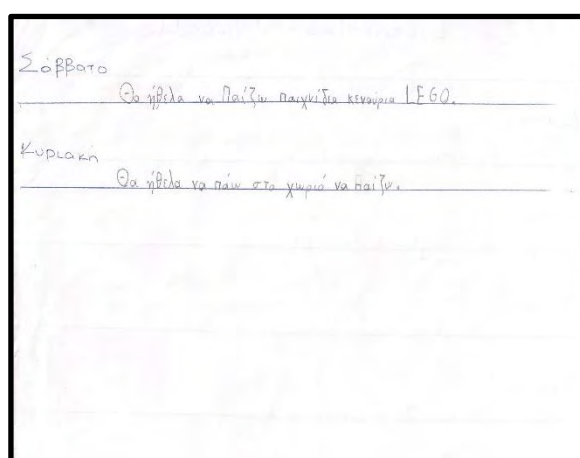 Σάββατο
Θα ήθελα να Παίζω παιχνίδια κενούρια LEGO.
Κυριακή
Θα ήθελα να πάω στο χωριό να Παίζω.